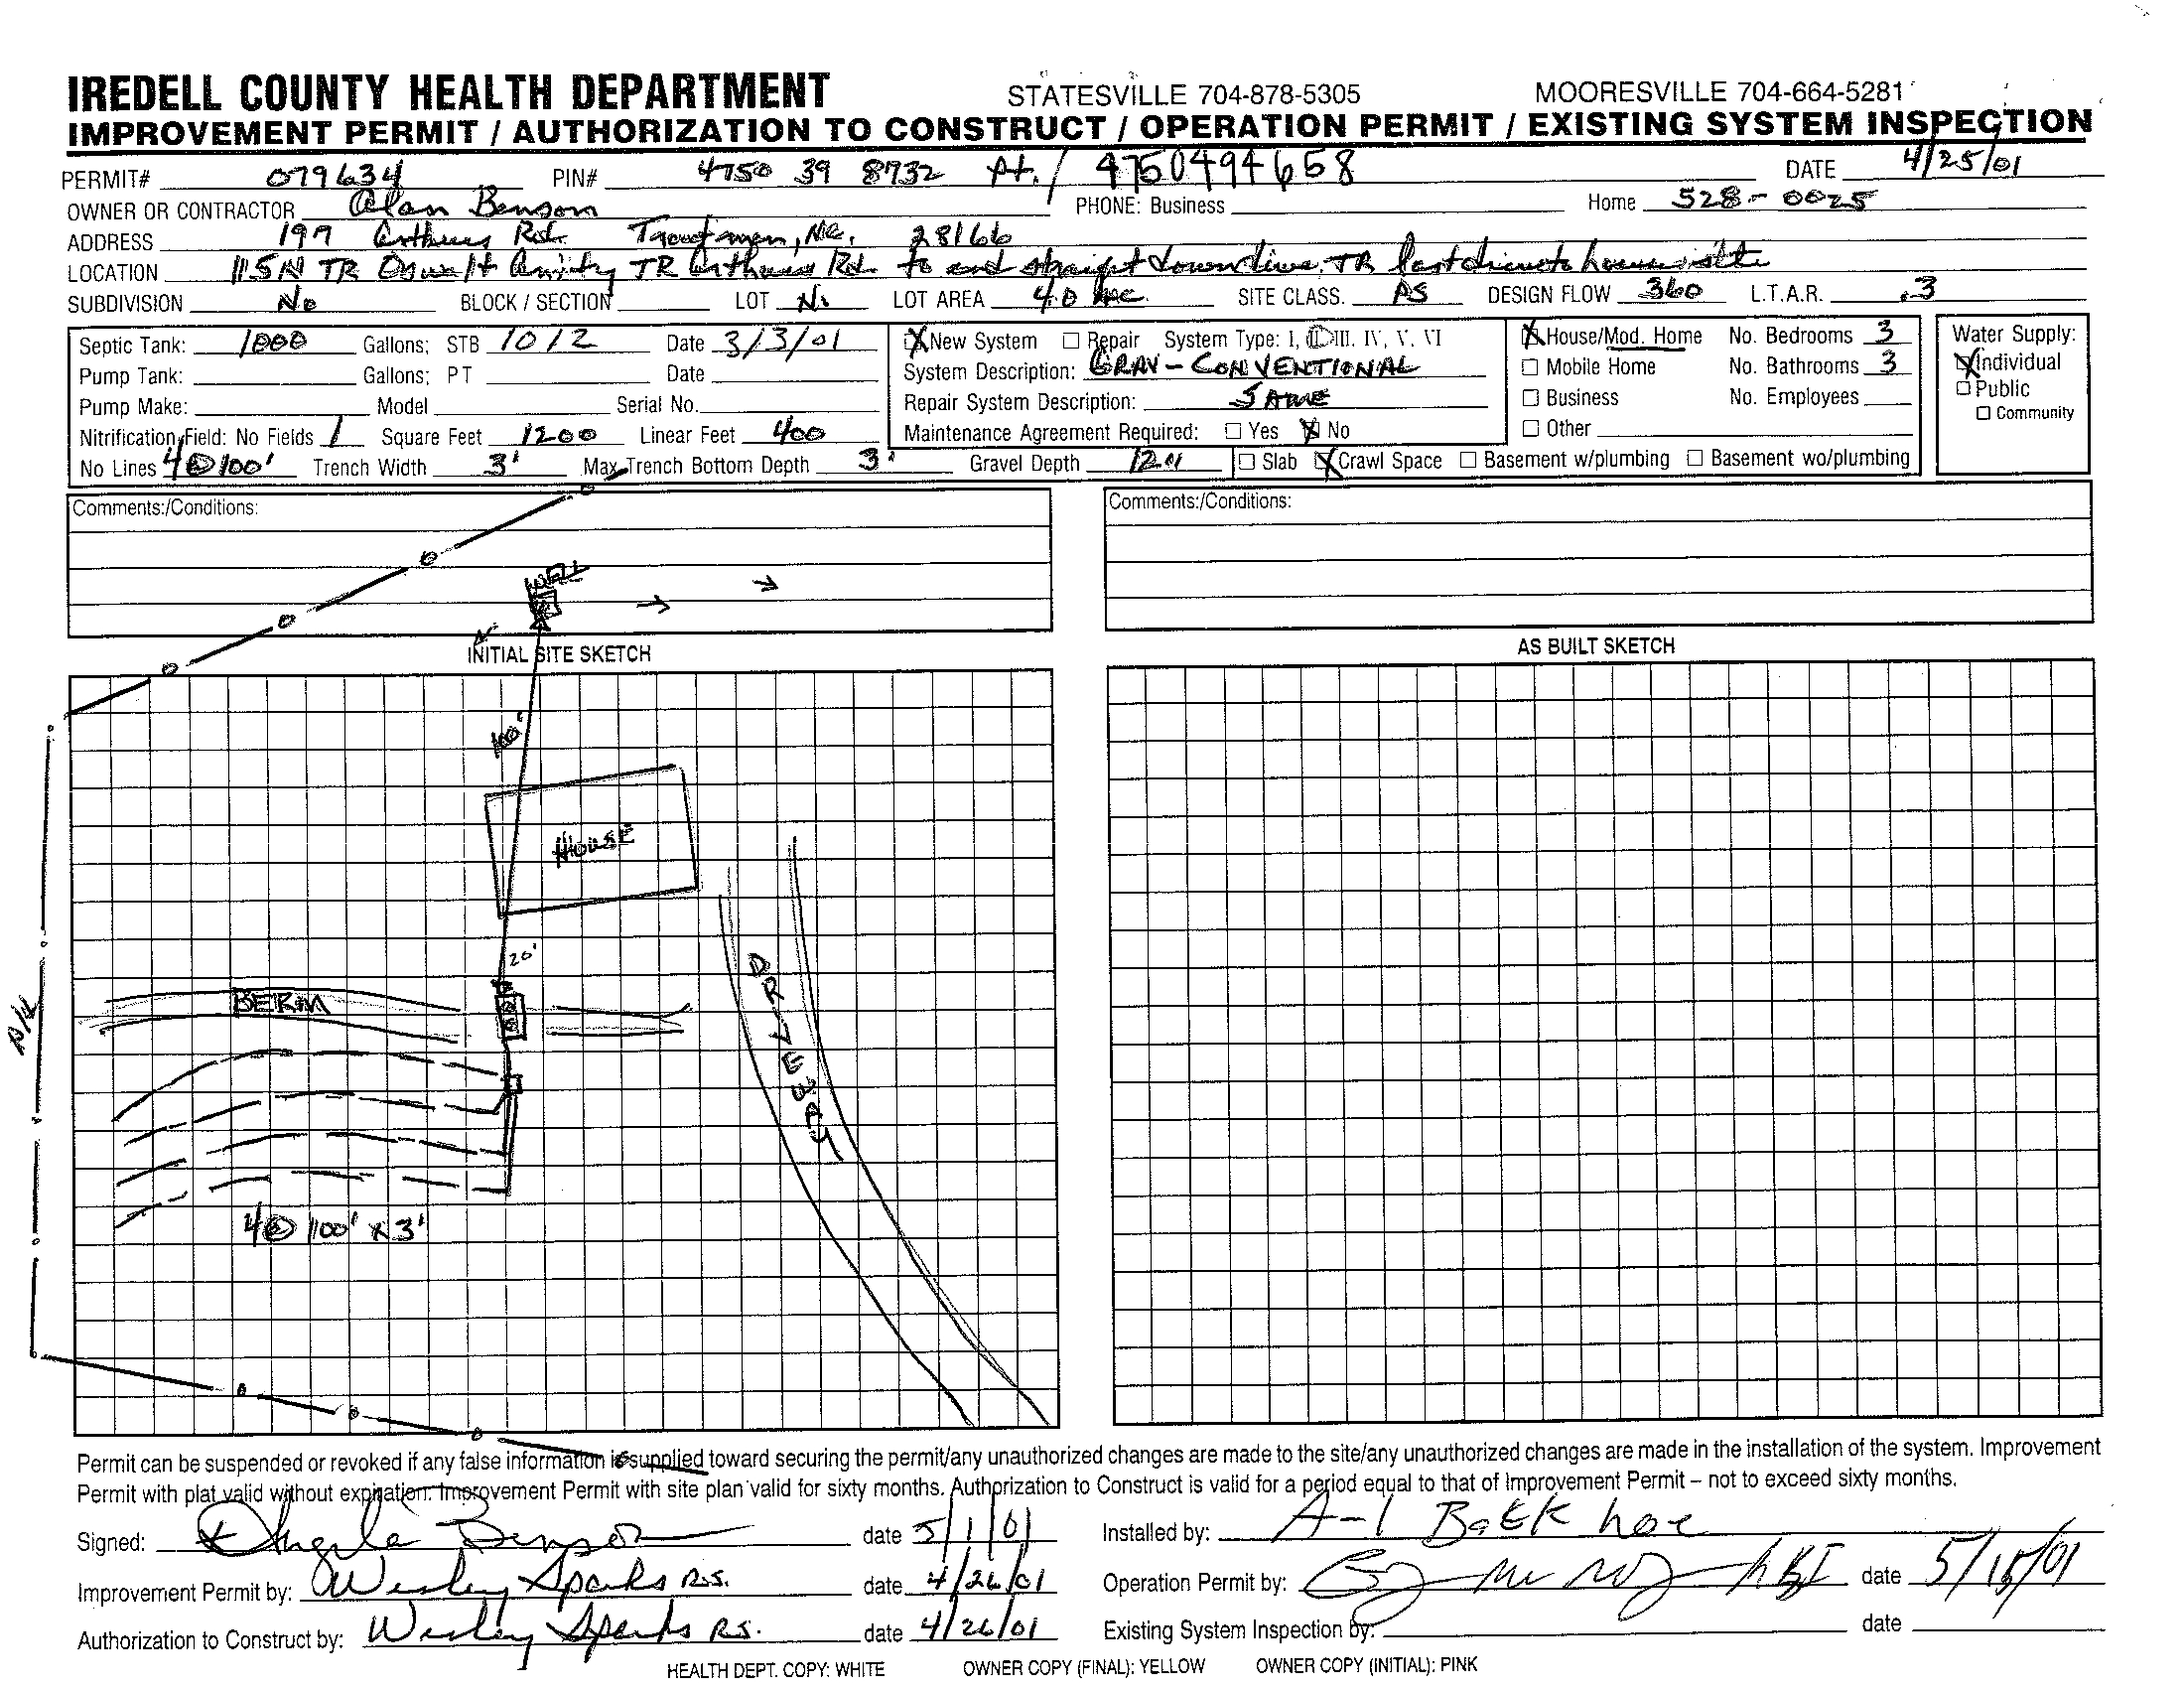 IREDELL COUNTY HEALTH DEPARTMENT STATESVILLE 704-878-5305 MOORESVILLE 704-664-5281
IMPROVEMENT PERMIT / AUTHORIZATION TO CONSTRUCT / OPERATION PERMIT / EXISTING SYSTEM INSPECTION
PERMIT# 079634 PIN# 4750 39 8932 Pt. / 4750494658 DATE 4/25/01
OWNER OR CONTRACTOR Alan Benson PHONE: Business Home 528-0025
ADDRESS 199 Arthurs Rd. Troutman, NC. 28166
LOCATION 115N TR Oswalt Amity TR Arthurs Rd. to end straight down drive, TR last drive to house site
SUBDIVISION No BLOCK / SECTION LOT No LOT AREA 4.0 Ac. SITE CLASS. PS DESIGN FLOW 360 L.T.A.R. .3
Septic Tank: 1000 Gallons; STB 1012 Date 3/3/01 X New System Repair System Type: I, II, III, IV, V, VI X House/Mod. Home No. Bedrooms 3 Water Supply:
Pump Tank: Gallons; PT Date System Description: GRAV-CONVENTIONAL Mobile Home No. Bathrooms 3 X Individual
Pump Make: Model Serial No. Repair System Description: SAME Business No. Employees Public
Community
Nitrification Field: No Fields 1 Square Feet 1200 Linear Feet 400 Maintenance Agreement Required: Yes X No Other
No Lines 4@100' Trench Width 3' Max Trench Bottom Depth 3' Gravel Depth 12" Slab X Crawl Space Basement w/plumbing Basement wo/plumbing
Comments:/Conditions: Comments:/Conditions:
WELL
INITIAL SITE SKETCH AS BUILT SKETCH
100'
HOUSE
20'
BERM
DRIVEWAY
4@100' x 3'
Permit can be suspended or revoked if any false information is supplied toward securing the permit/any unauthorized changes are made to the site/any unauthorized changes are made in the installation of the system. Improvement
Permit with plat valid without expiration. Improvement Permit with site plan valid for sixty months. Authorization to Construct is valid for a period equal to that of Improvement Permit – not to exceed sixty months.
Signed: X Angela Benson date 5/1/01 Installed by: A-1 Backhoe
Improvement Permit by: Wesley Sparks R.S. date 4/26/01 Operation Permit by: date 5/15/01
Authorization to Construct by: Wesley Sparks R.S. date 4/26/01 Existing System Inspection by: date
HEALTH DEPT. COPY: WHITE OWNER COPY (FINAL): YELLOW OWNER COPY (INITIAL): PINK